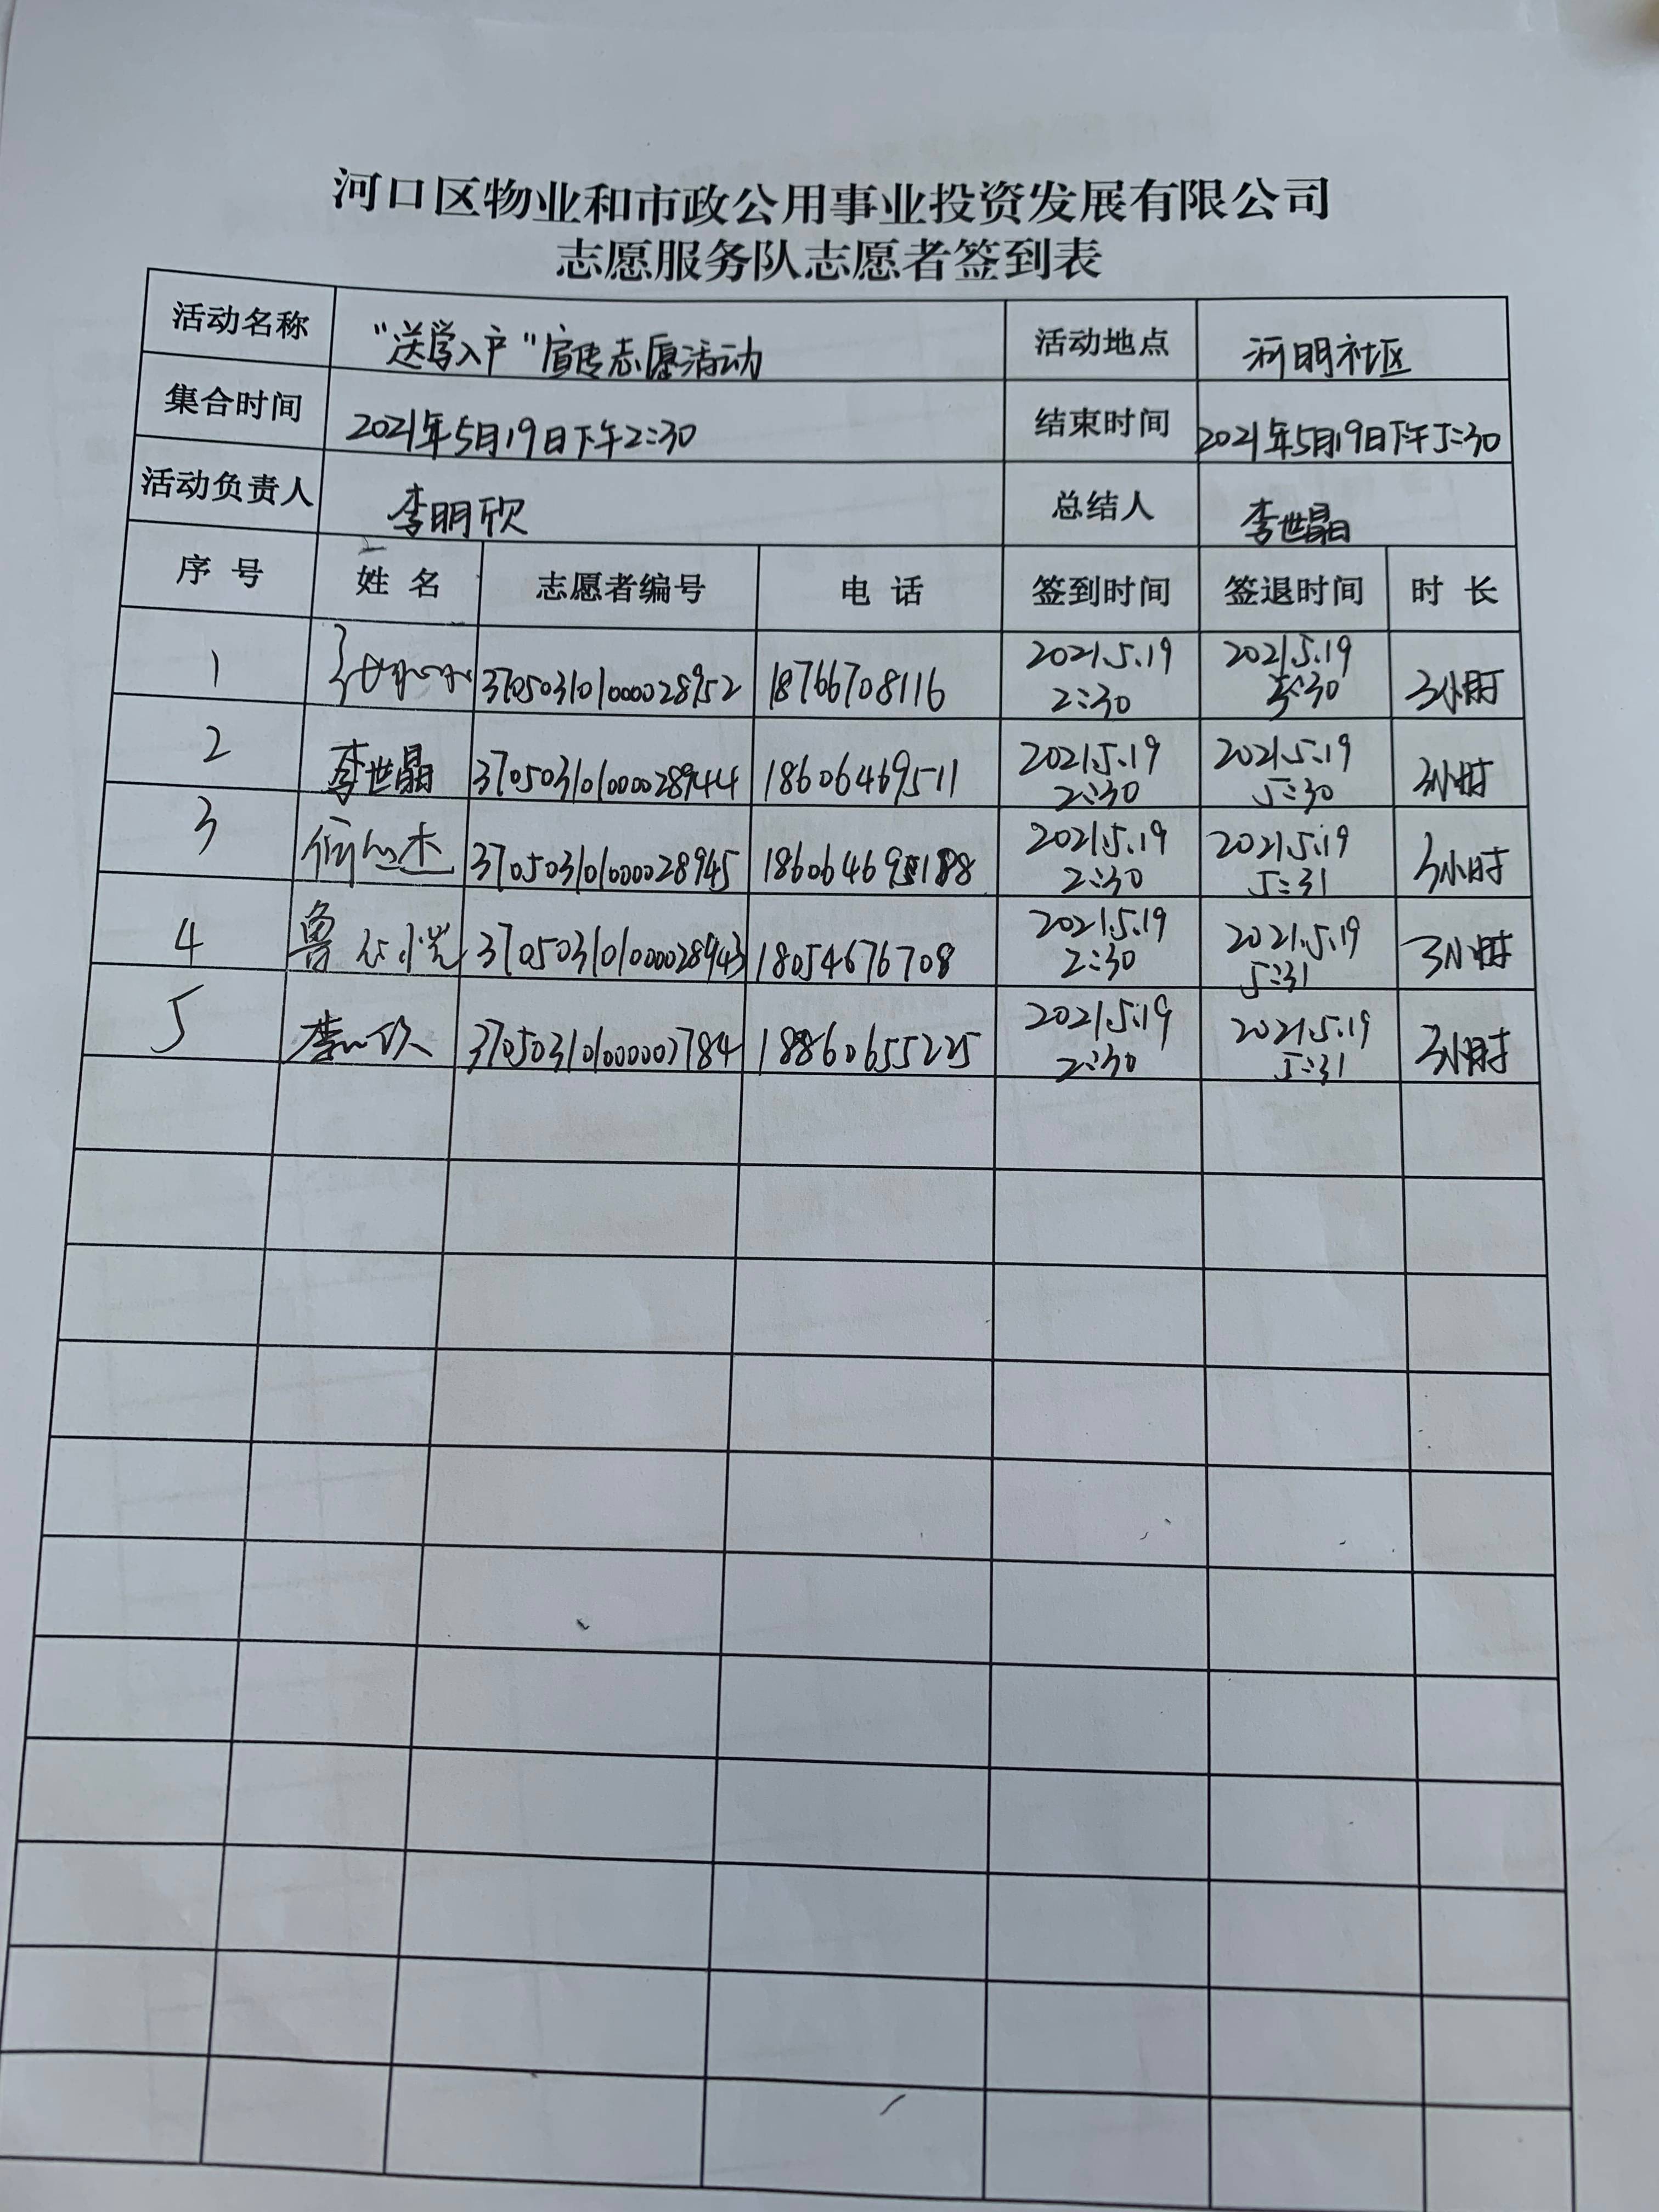 河口区物业和市政公用事业投资发展有限公司
志愿服务队志愿者签到表
活动名称 "送学入户"宣传志愿活动 活动地点 河明社区
集合时间 2021年5月19日下午2:30 结束时间 2021年5月19日下午5:30
活动负责人 李明欣 总结人 李世晶
序号 姓名 志愿者编号 电话 签到时间 签退时间 时长
1 3705031010000028952 18766708116 2021.5.19 2:30 2021.5.19 5:30 3小时
2 李世晶 3705031010000028944 18606469511 2021.5.19 2:30 2021.5.19 5:30 3小时
3 3705031010000028945 2021.5.19 2:30 2021.5.19 5:31 3小时
4 鲁 3705031010000028943 18054676708 2021.5.19 2:30 2021.5.19 5:31 3小时
5 李 欣 18860655225 2021.5.19 2:30 2021.5.19 5:31 3小时